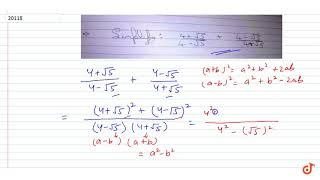 20118
Simplify: 4+√5/4-√5 + 4-√5/4+√5
4+√5/4-√5 + 4-√5/4+√5
(a+b)² = a²+b²+2ab
(a-b)² = a²+b²-2ab
= (4+√5)² + (4-√5)²/(4-√5)(4+√5) = 4²/4²-(√5)²
(a-b) (a+b)
= a²-b²